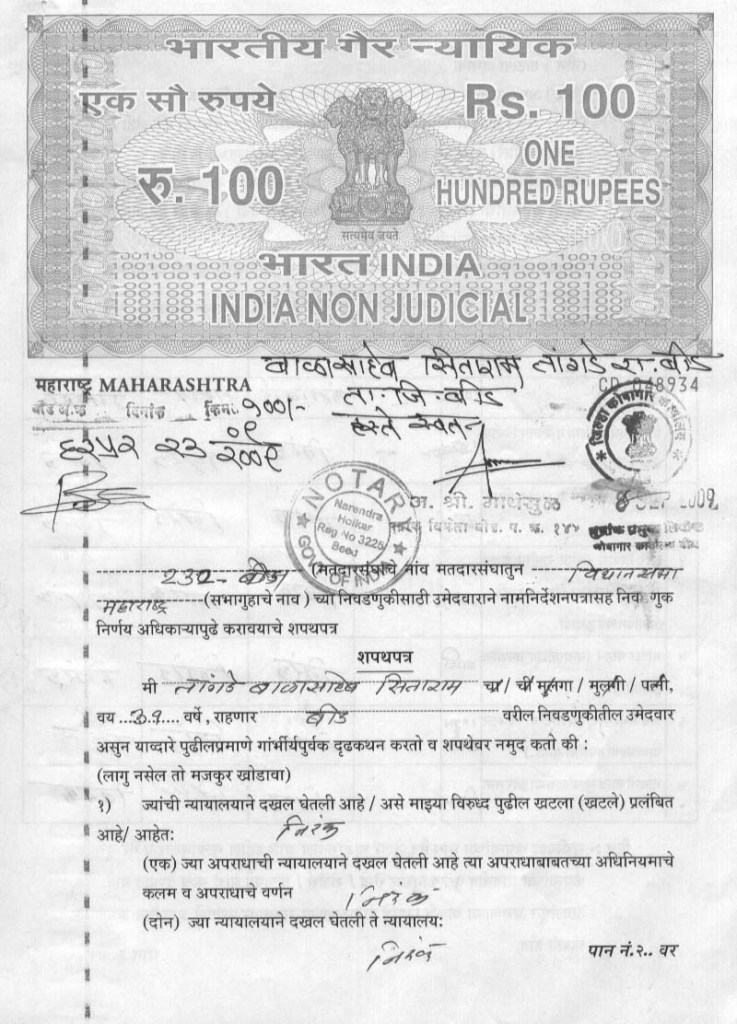 भारतीय गैर न्यायिक
एक सौ रुपये
Rs. 100
रु. 100
ONE
HUNDRED RUPEES
सत्यमेव जयते
भारत INDIA
INDIA NON JUDICIAL
बाळासाहेब सिताराम तांगडे रा. बीड
महाराष्ट्र MAHARASHTRA
ता. जि. बीड
048934
दिनांक किंमत 900/-
हस्ते स्वतः
23 09/2009
जिल्हा कोषागार कार्यालय
NOTAR
Narendra
Holkar
Reg No 3225
Beed
GOVT OF INDIA
अ. श्री.
8 SEP 2009
232- बीड (मतदारसंघाचे नांव मतदारसंघातुन विधानसभा
महाराष्ट्र (सभागुहाचे नाव ) च्या निवडणुकीसाठी उमेदवाराने नामनिर्देशनपत्रासह निवडणुक
निर्णय अधिकाऱ्यापुढे करावयाचे शपथपत्र
शपथपत्र
मी तांगडे बाळासाहेब सिताराम चा/ ची मुलगा / मुलगी / पत्नी,
वय ...39.... वर्षे, राहणार बीड वरील निवडणुकीतील उमेदवार
असुन याव्दारे पुढीलप्रमाणे गांर्भीर्यपुर्वक दृढकथन करतो व शपथेवर नमुद कतो की :
(लागु नसेल तो मजकुर खोडावा)
१) ज्यांची न्यायालयाने दखल घेतली आहे / असे माझ्या विरुध्द पुढील खटला (खटले) प्रलंबित
आहे/ आहेत: निरंक
(एक) ज्या अपराधाची न्यायालयाने दखल घेतली आहे त्या अपराधाबाबतच्या अधिनियमाचे
कलम व अपराधाचे वर्णन निरंक
(दोन) ज्या न्यायालयाने दखल घेतली ते न्यायालय:
निरंक
पान नं.२.. वर